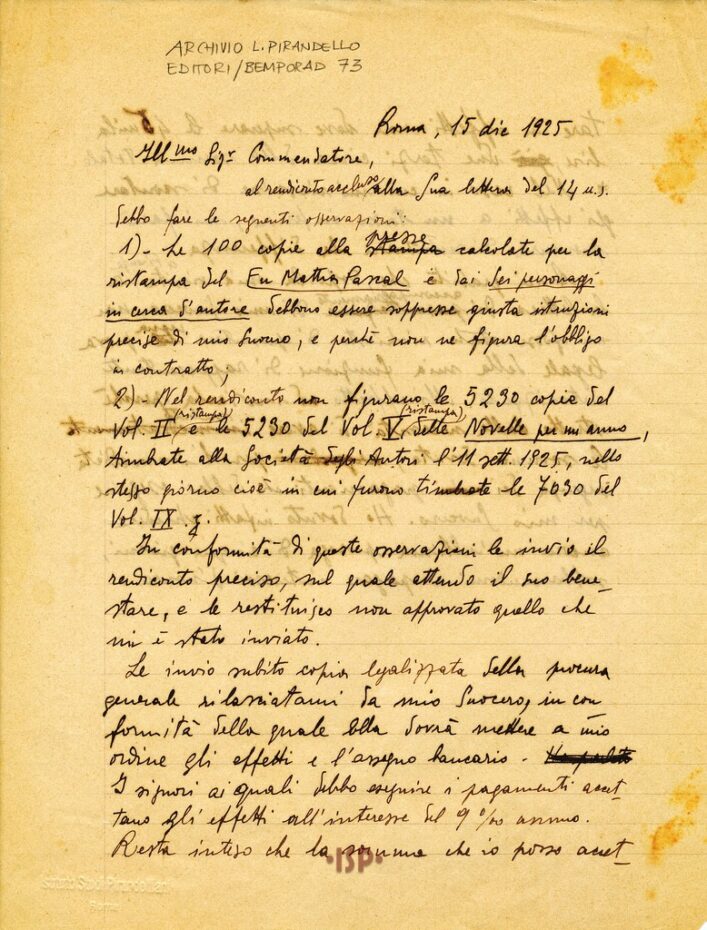 ARCHIVIO L. PIRANDELLO
EDITORI/BEMPORAD 73
Roma, 15 dic 1925
Ill mo Sigr Commendatore,
al rendiconto accluso alla Sua lettera del 14 u.s.
debbo fare le seguenti osservazioni:
1)- Le 100 copie alla stampa presse calcolate per la
ristampa del Fu Mattia Pascal e dai Sei personaggi
in cerca d'autore debbono essere soppresse giusta istruzioni
precise di mio Suocero, e perchè non ne figura l'obbligo
in contratto;
2)- Nel rendiconto non figurano le 5230 copie del
Vol. II (ristampa) e le 5230 del Vol. V (ristampa), delle Novelle per un anno,
timbrate alla Società degli Autori l'11 sett. 1925, nello
stesso giorno cioè in cui furono timbrate le 7030 del
Vol. IX.
In conformità di queste osservazioni le invio il
rendiconto preciso, sul quale attendo il suo bene-
stare, e le restituisco non approvato quello che
mi è stato inviato.
Le invio subito copia legalizzata della procura
generale rilasciatami da mio Suocero, in con
formità della quale Ella dovrà mettere a mio
ordine gli effetti e l'assegno bancario -
I signori ai quali debbo eseguire i pagamenti accet-
tano gli effetti all'interesse del 9% annuo.
Resta inteso che la somma che io posso accet-
ISP
Istituto Studi Pirandelliani
Roma